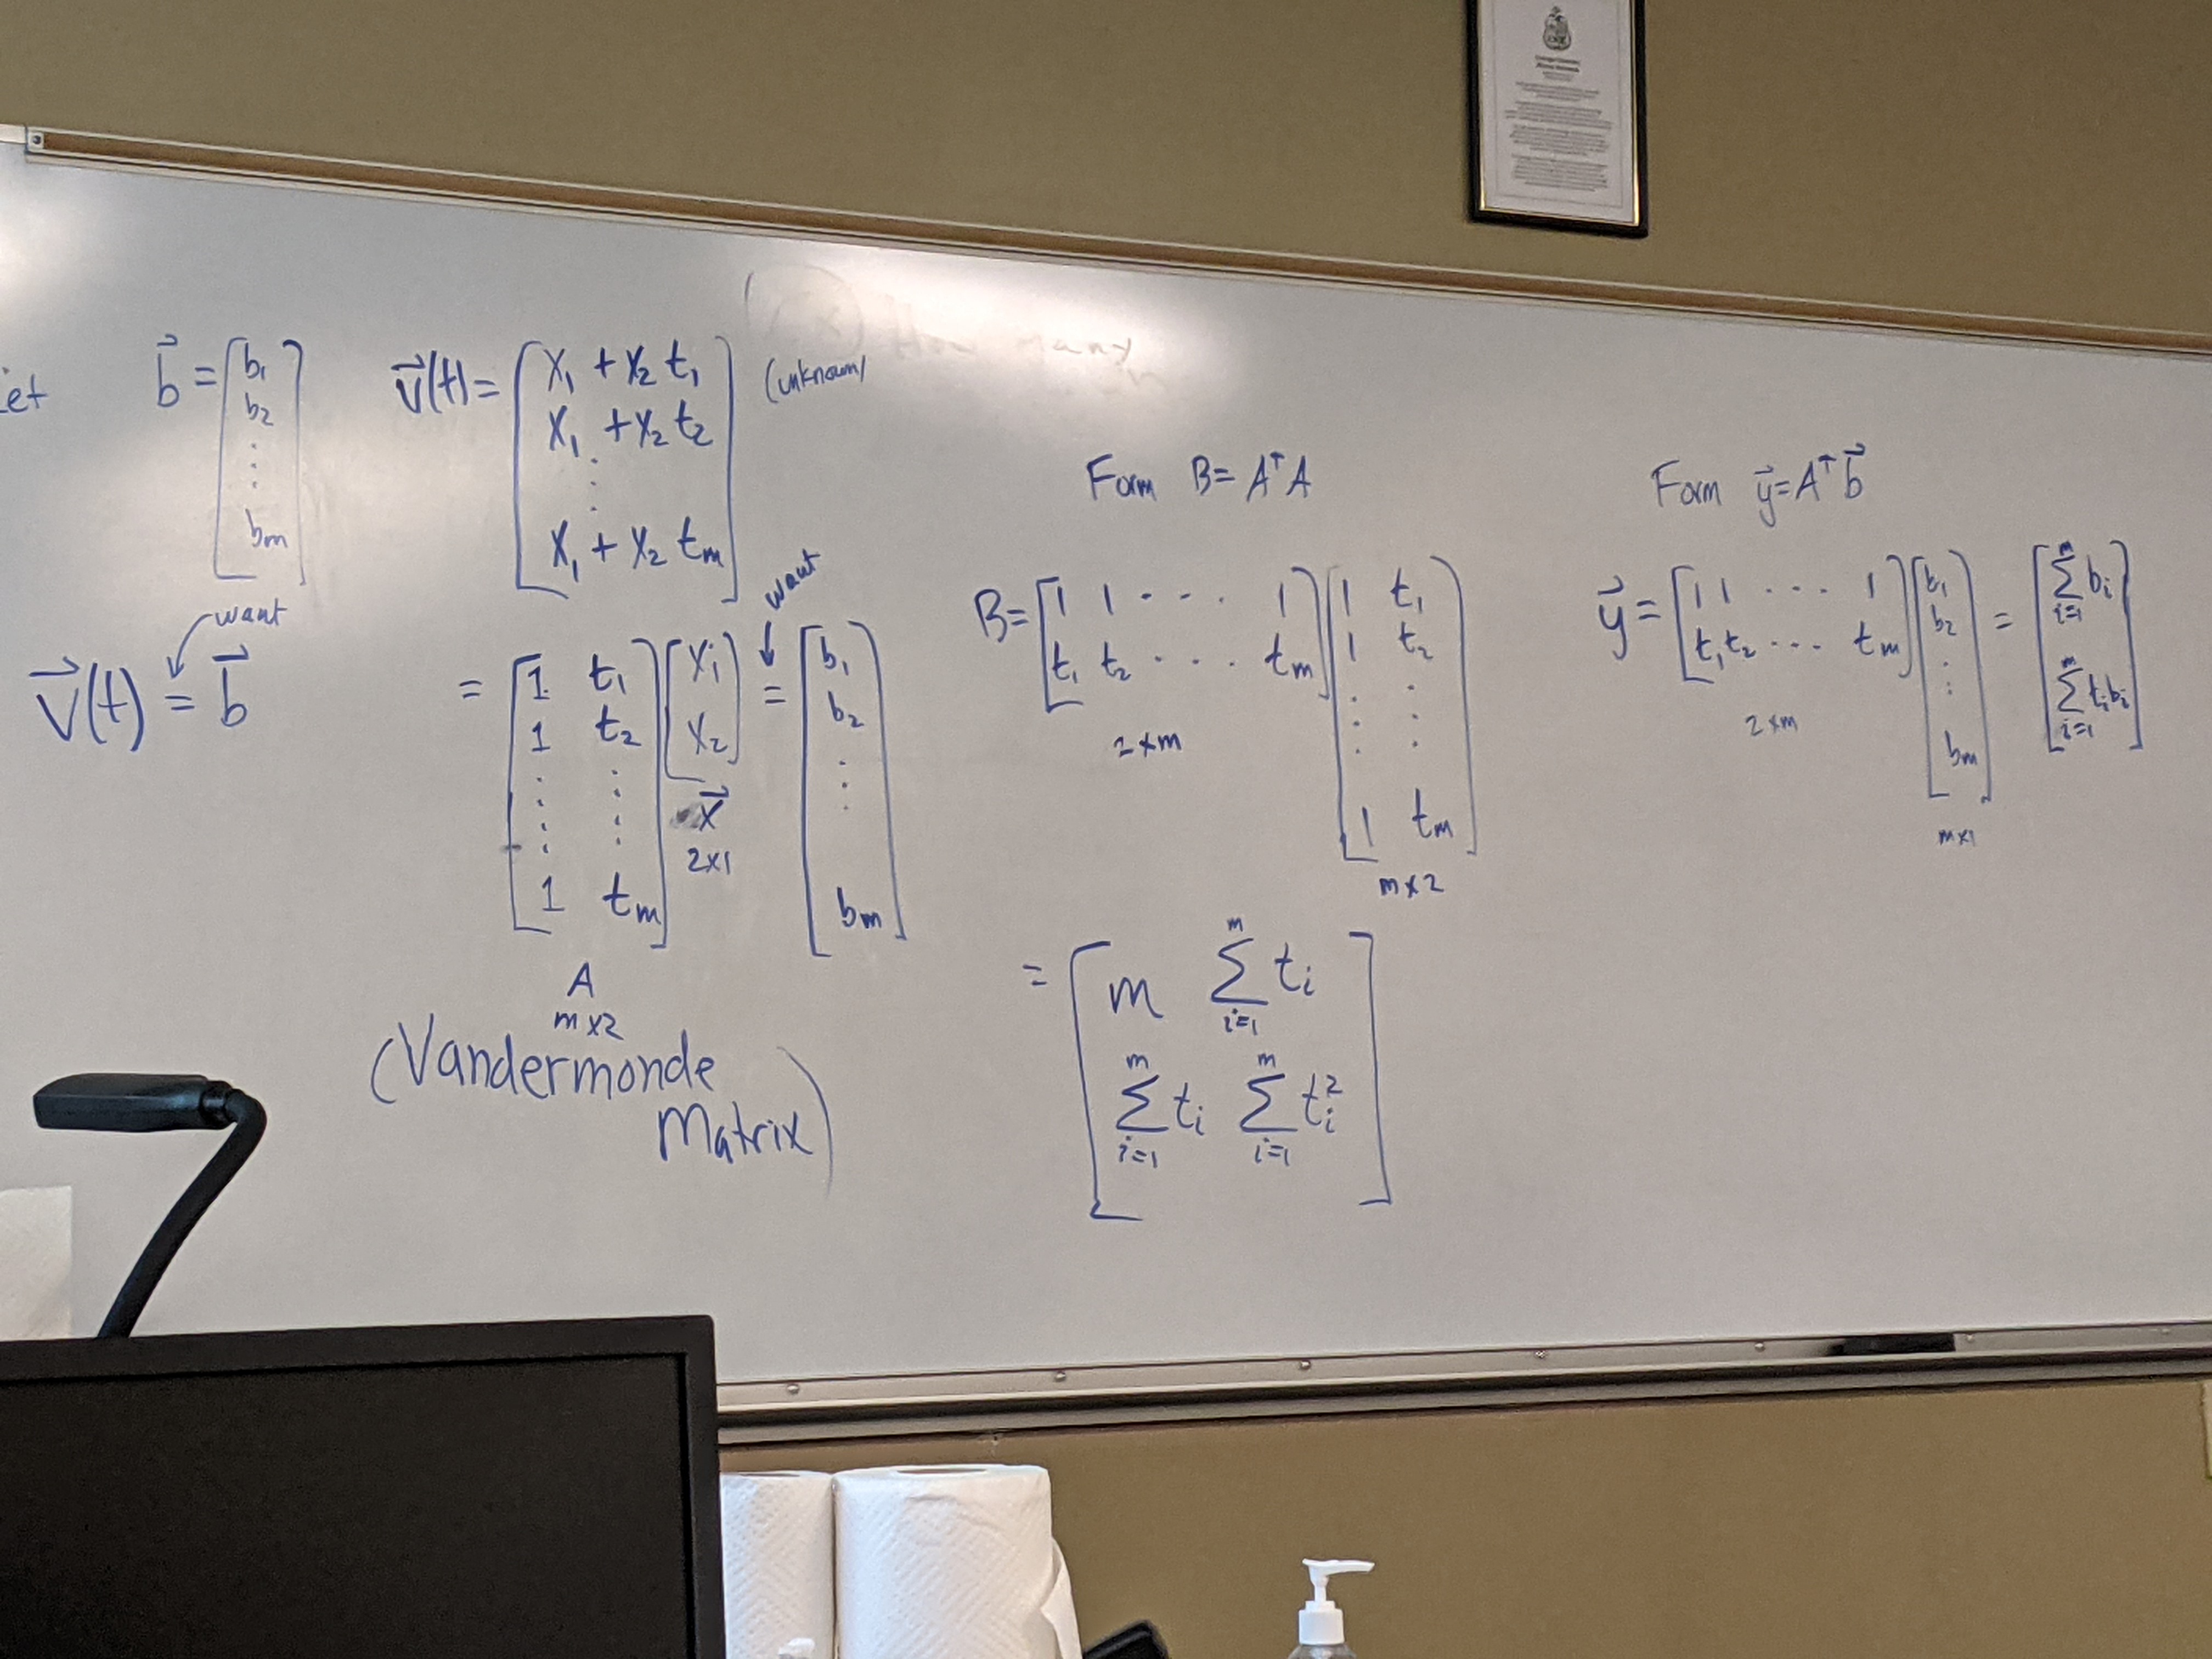 How many
b⃗ = [b₁ b₂ ⋮ bₘ]
v⃗(t) = [x₁ + x₂ t₁
x₁ + x₂ t₂
⋮
x₁ + x₂ tₘ] (unknown)
want
v⃗(t) = b⃗
want
= [1 t₁
1 t₂
⋮ ⋮
1 tₘ] [x₁ x₂] = [b₁ b₂ ⋮ bₘ]
x⃗
2x1
A
m x2
(Vandermonde
Matrix)
Form B = AᵀA
B = [1 1 ... 1
t₁ t₂ ... tₘ] [1 t₁
1 t₂
⋮ ⋮
1 tₘ]
2 x m
m x 2
= [m ∑ᵢ₌₁ᵐ tᵢ
∑ᵢ₌₁ᵐ tᵢ ∑ᵢ₌₁ᵐ tᵢ²]
Form y⃗ = Aᵀb⃗
y⃗ = [1 1 ... 1
t₁ t₂ ... tₘ] [b₁ b₂ ⋮ bₘ] = [∑ᵢ₌₁ᵐ bᵢ
∑ᵢ₌₁ᵐ tᵢbᵢ]
2 x m
m x 1